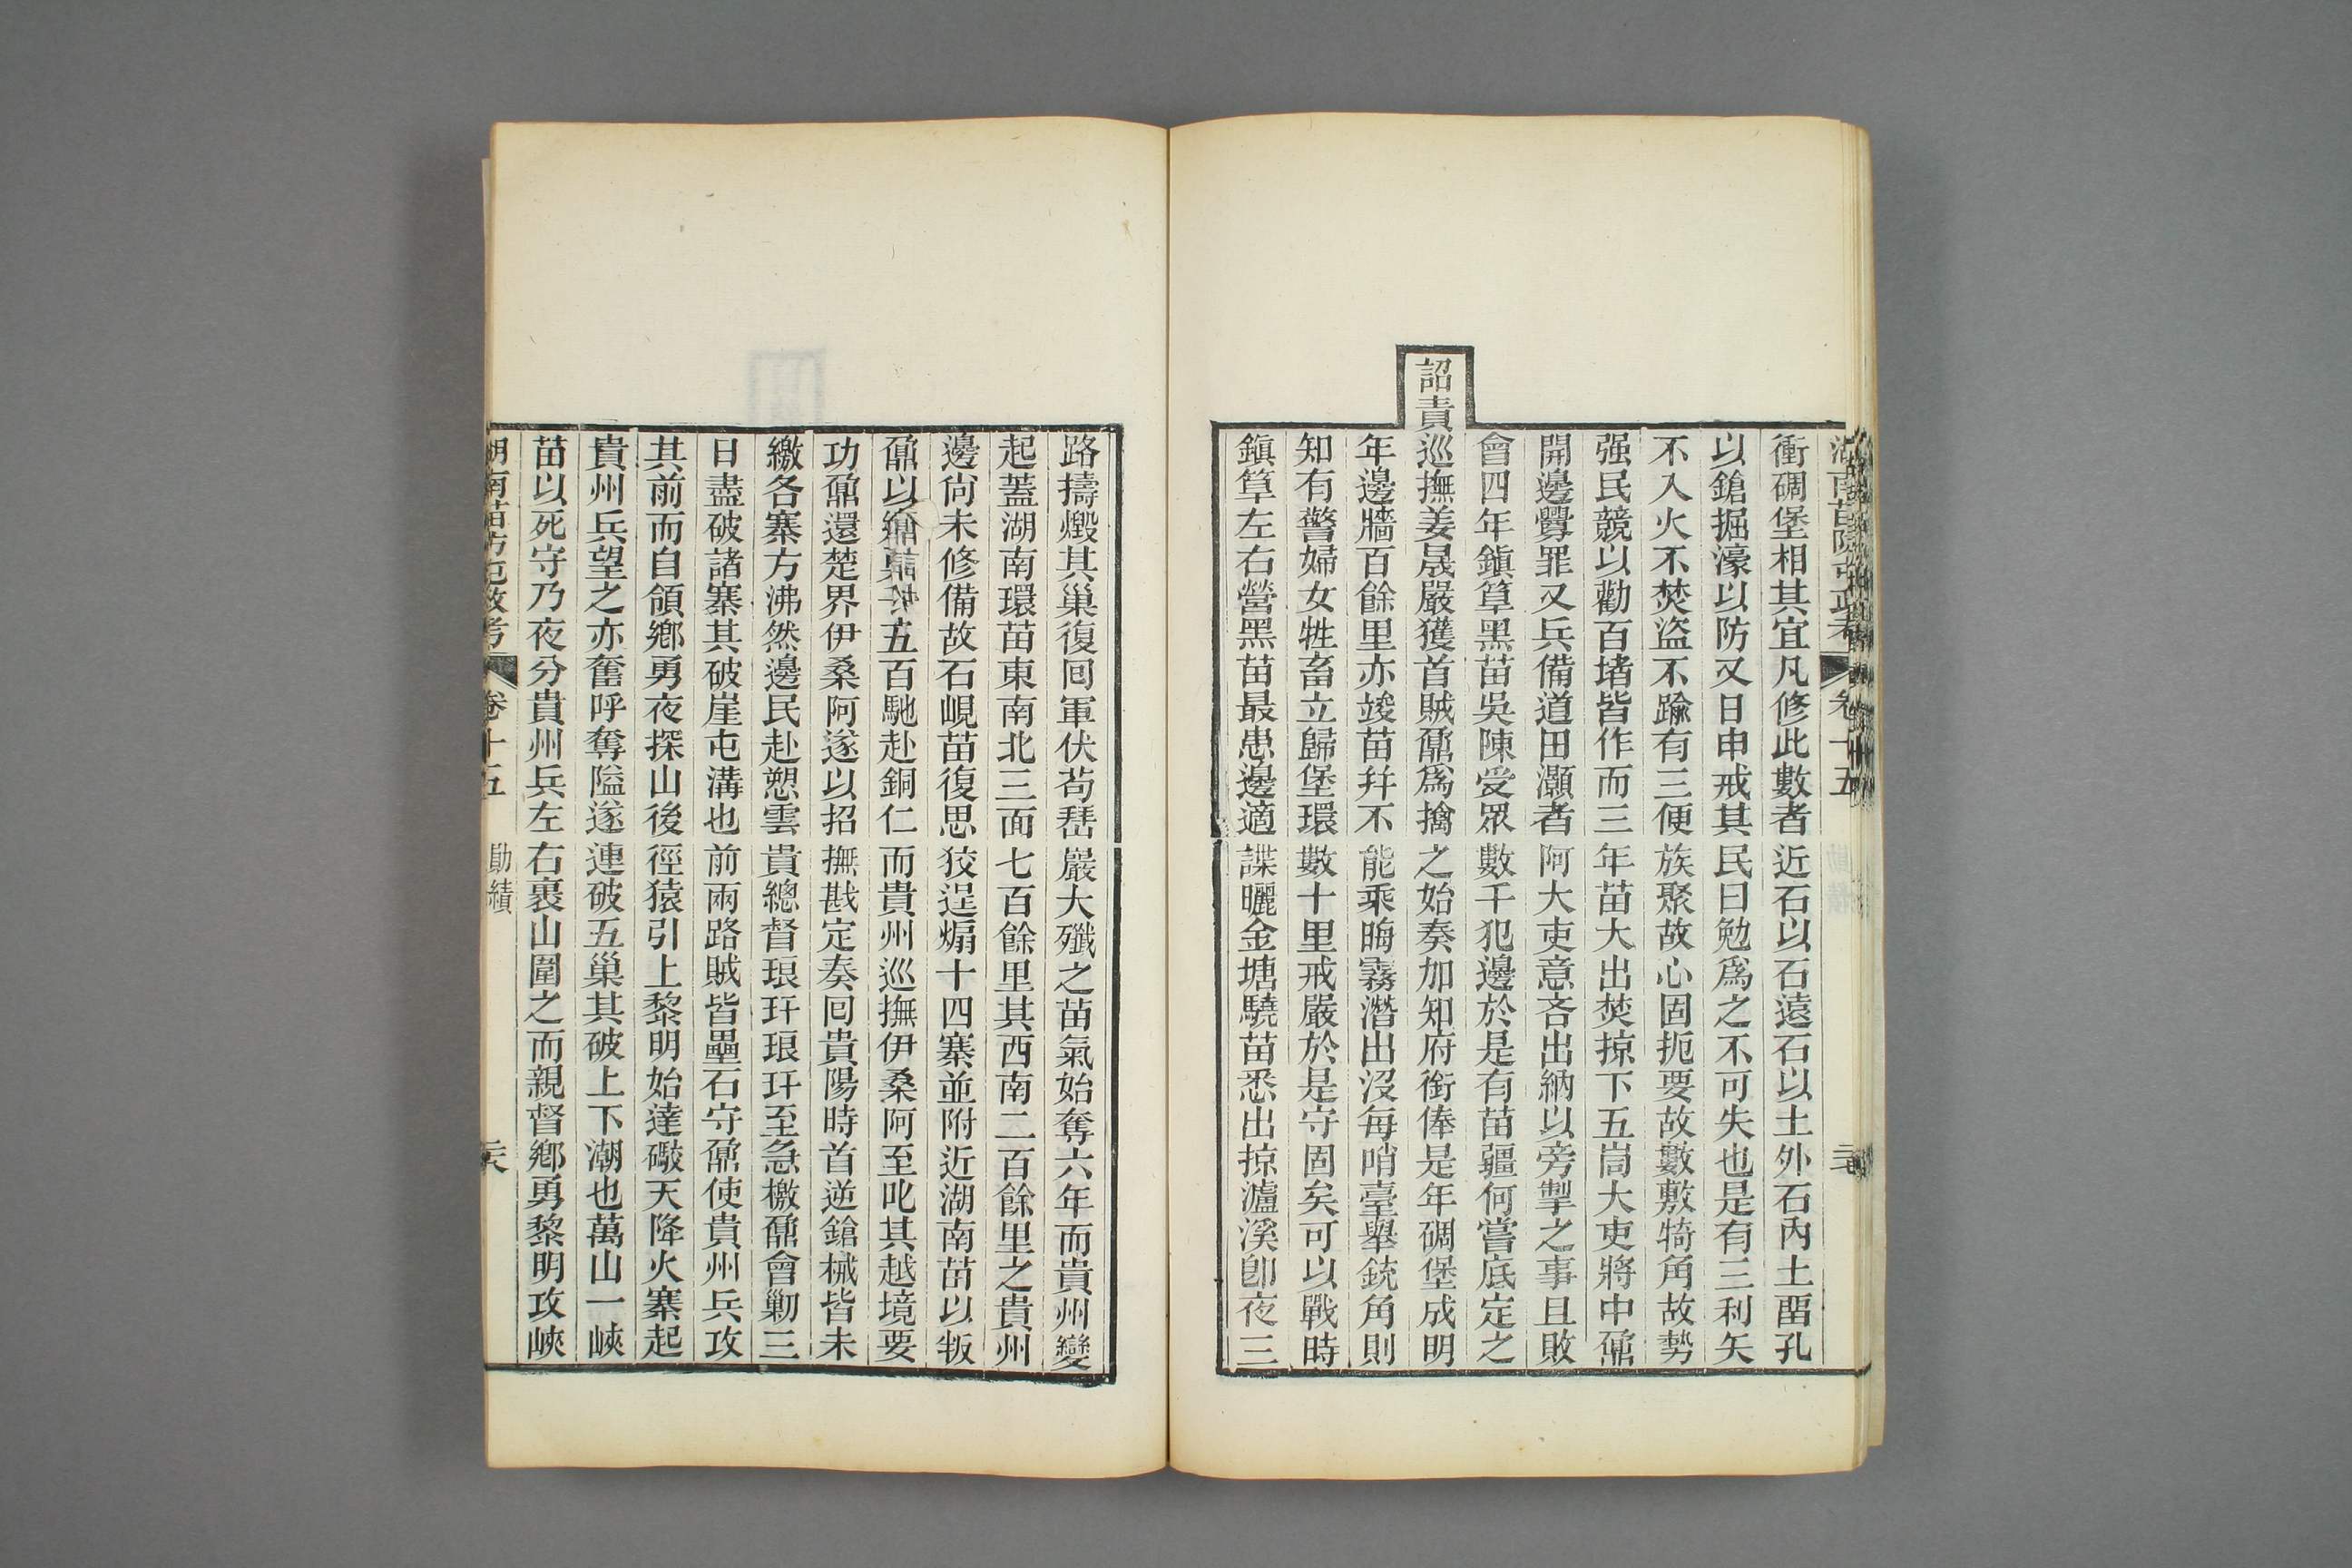 湖南苗防屯政考 卷十五
衝碉堡相其宜凡修此數者近石以石遠石以土外石內土畱孔
以鎗掘濠以防又日申戒其民曰勉爲之不可失也是有三利矢
不入火不焚盜不踰有三便族聚故心固扼要故數敷犄角故勢
强民競以勸百堵皆作而三年苗大出焚掠下五峝大吏將中鼐
開邊釁罪又兵備道田灝者阿大吏意吝出納以旁掣之事且敗
會四年鎭筸黑苗吳陳受眾數千犯邊於是有苗疆何嘗底定之
詔責巡撫姜晟嚴獲首賊鼐爲擒之始奏加知府銜俸是年碉堡成明
年邊牆百餘里亦竣苗幷不能乘晦霧潛出沒每哨臺舉銃角則
知有警婦女牲畜立歸堡環數十里戒嚴於是守固矣可以戰時
鎭筸左右營黑苗最患邊適諜曬金塘驍苗悉出掠瀘溪卽夜三
路擣燬其巢復囘軍伏茍琶巖大殲之苗氣始奪六年而貴州變
起蓋湖南環苗東南北三面七百餘里其西南二百餘里之貴州
邊尙未修備故石峴苗復思狡逞煽十四寨並附近湖南苗以叛
鼐以鄉勇千五百馳赴銅仁而貴州巡撫伊桑阿至叱其越境要
功鼐還楚界伊桑阿遂以招撫戡定奏囘貴陽時首逆鎗械皆未
繳各寨方沸然邊民赴愬雲貴總督琅玕琅玕至急檄鼐會勦三
日盡破諸寨其破崖屯溝也前兩路賊皆壘石守鼐使貴州兵攻
其前而自領鄉勇夜探山後徑猿引上黎明始達礮天降火寨起
貴州兵望之亦奮呼奪隘遂連破五巢其破上下潮也萬山一峽
苗以死守乃夜分貴州兵左右裹山圍之而親督鄉勇黎明攻峽
湖南苗防屯政考 卷十五 勛績 天